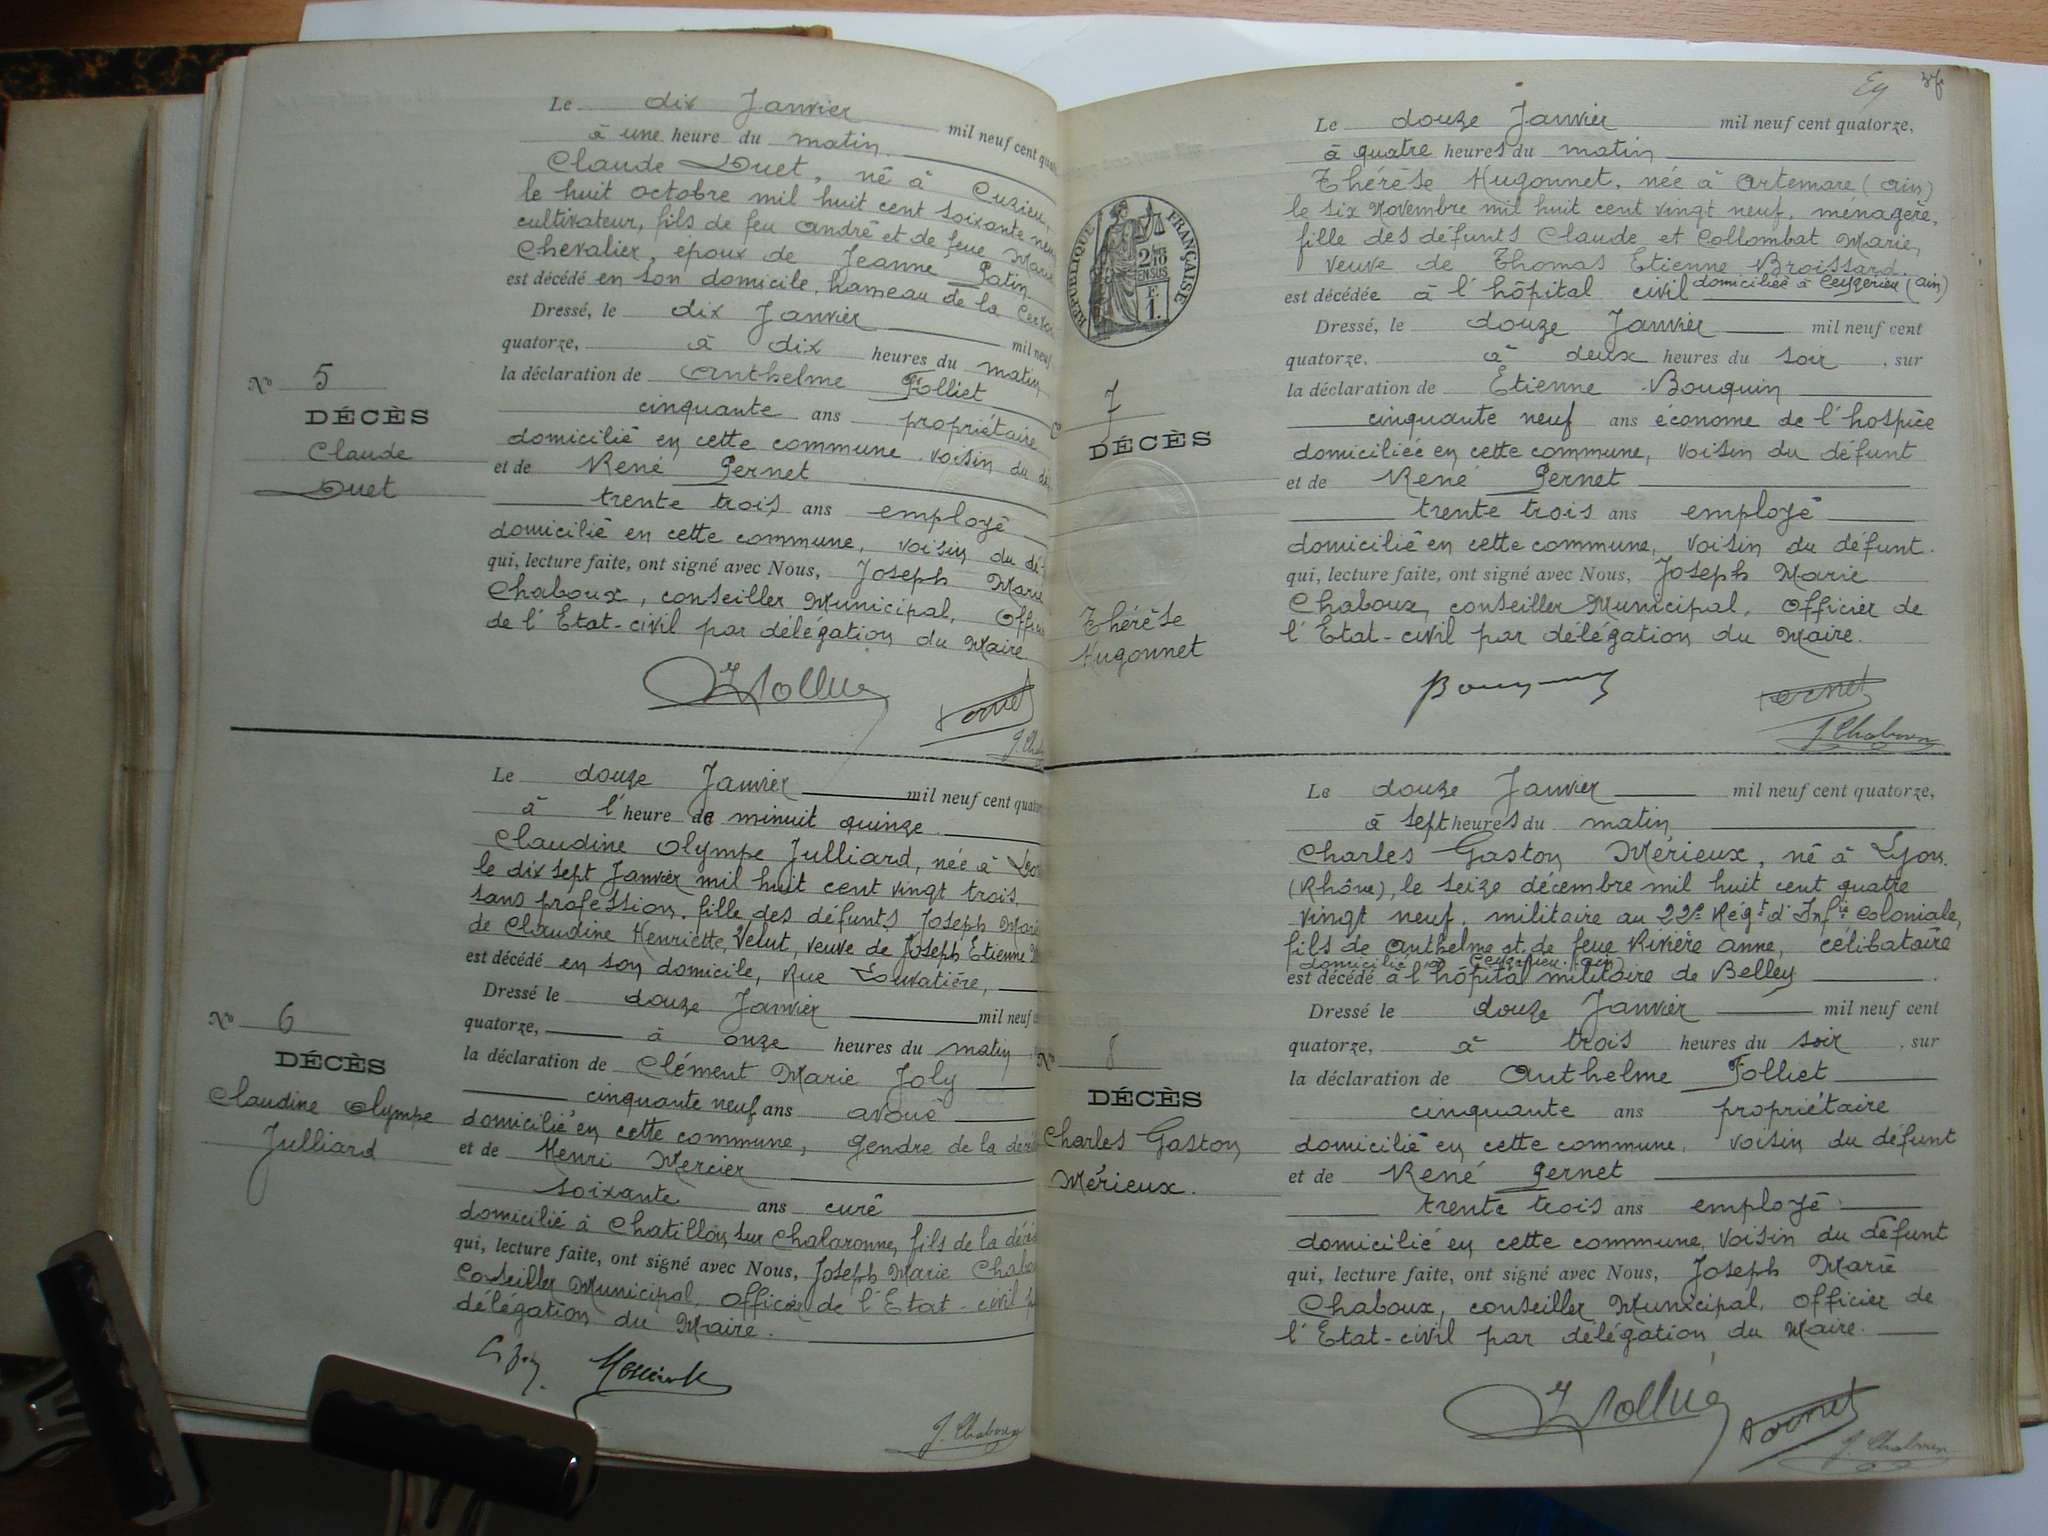 Le dix Janvier mil neuf cent
à une heure du matin
Claude Duet, né à Cuzieu,
le huit octobre mil huit cent soixante neuf
cultivateur, fils de feu André et de feue Marie
Chevalier, époux de Jeanne Patin
est décédé en son domicile, hameau de la
Dressé, le dix Janvier mil neuf
quatorze, à dix heures du matin
la déclaration de Anthelme Folliet
cinquante ans propriétaire
domicilié en cette commune voisin du
et de René Pernet
trente trois ans employé
domicilié en cette commune, voisin du dé-
qui, lecture faite, ont signé avec Nous, Joseph Marie
Chaboux, conseiller Municipal,
de l'Etat-civil par délégation du Maire
No 5
DÉCÈS
Claude
Duet
Le douze Janvier mil neuf cent
à l'heure de minuit quinze
Claudine Olympe Julliard, née à
le dix sept Janvier mil huit cent vingt trois
sans profession, fille des défunts Joseph Marie
de Claudine Henriette Velut, veuve de Joseph Etienne
est décédé en son domicile, Rue
Dressé le douze Janvier mil neuf
quatorze, à onze heures du matin
la déclaration de Clément Marie Joly
cinquante neuf ans avoué
domicilié en cette commune, gendre de la
et de Henri Mercier
soixante ans curé
domicilié à Chatillon sur Chalaronne, fils de la
qui, lecture faite, ont signé avec Nous, Joseph Marie
Conseiller Municipal, Officier de l'Etat-civil
délégation du Maire.
J. Chaboux
No 6
DÉCÈS
Claudine Olympe
Julliard
Le douze Janvier mil neuf cent quatorze,
à quatre heures du matin
Thérèse Hugonnet, née à Artemare (Ain)
le six Novembre mil huit cent vingt neuf, ménagère,
fille des défunts Claude et Collombat Marie,
veuve de Thomas Etienne Broissard
domiciliée à Ceyzérieu (Ain)
est décédée à l'hôpital civil
Dressé, le douze Janvier mil neuf cent
quatorze, à deux heures du soir, sur
la déclaration de Etienne Bouquin
cinquante neuf ans économe de l'hospice
domiciliée en cette commune, voisin du défunt
et de René Pernet
trente trois ans employé
domicilié en cette commune, voisin du défunt.
qui, lecture faite, ont signé avec Nous, Joseph Marie
Chaboux, conseiller Municipal, Officier de
l'Etat-civil par délégation du Maire.
Pernet
J. Chaboux
RÉPUBLIQUE FRANÇAISE
2/10 EN SUS
F.
1.
7
DÉCÈS
Thérèse
Hugonnet
Le douze Janvier mil neuf cent quatorze,
à sept heures du matin
Charles Gaston Mérieux, né à Lyon
(Rhône), le seize décembre mil huit cent quatre
vingt neuf, militaire au 22e Régt d'Infie Coloniale,
fils de Anthelme et de feue Rivière Anne, célibataire
domicilié à Ceyzérieu (Ain)
est décédé à l'hôpital militaire de Belley
Dressé le douze Janvier mil neuf cent
quatorze, à trois heures du soir, sur
la déclaration de Anthelme Folliet
cinquante ans propriétaire
domicilié en cette commune, voisin du défunt
et de René Pernet
trente trois ans employé
domicilié en cette commune, voisin du défunt
qui, lecture faite, ont signé avec Nous, Joseph Marie
Chaboux, conseiller Municipal, Officier de
l'Etat-civil par délégation du Maire.
J. Chaboux
No 8
DÉCÈS
Charles Gaston
Mérieux.